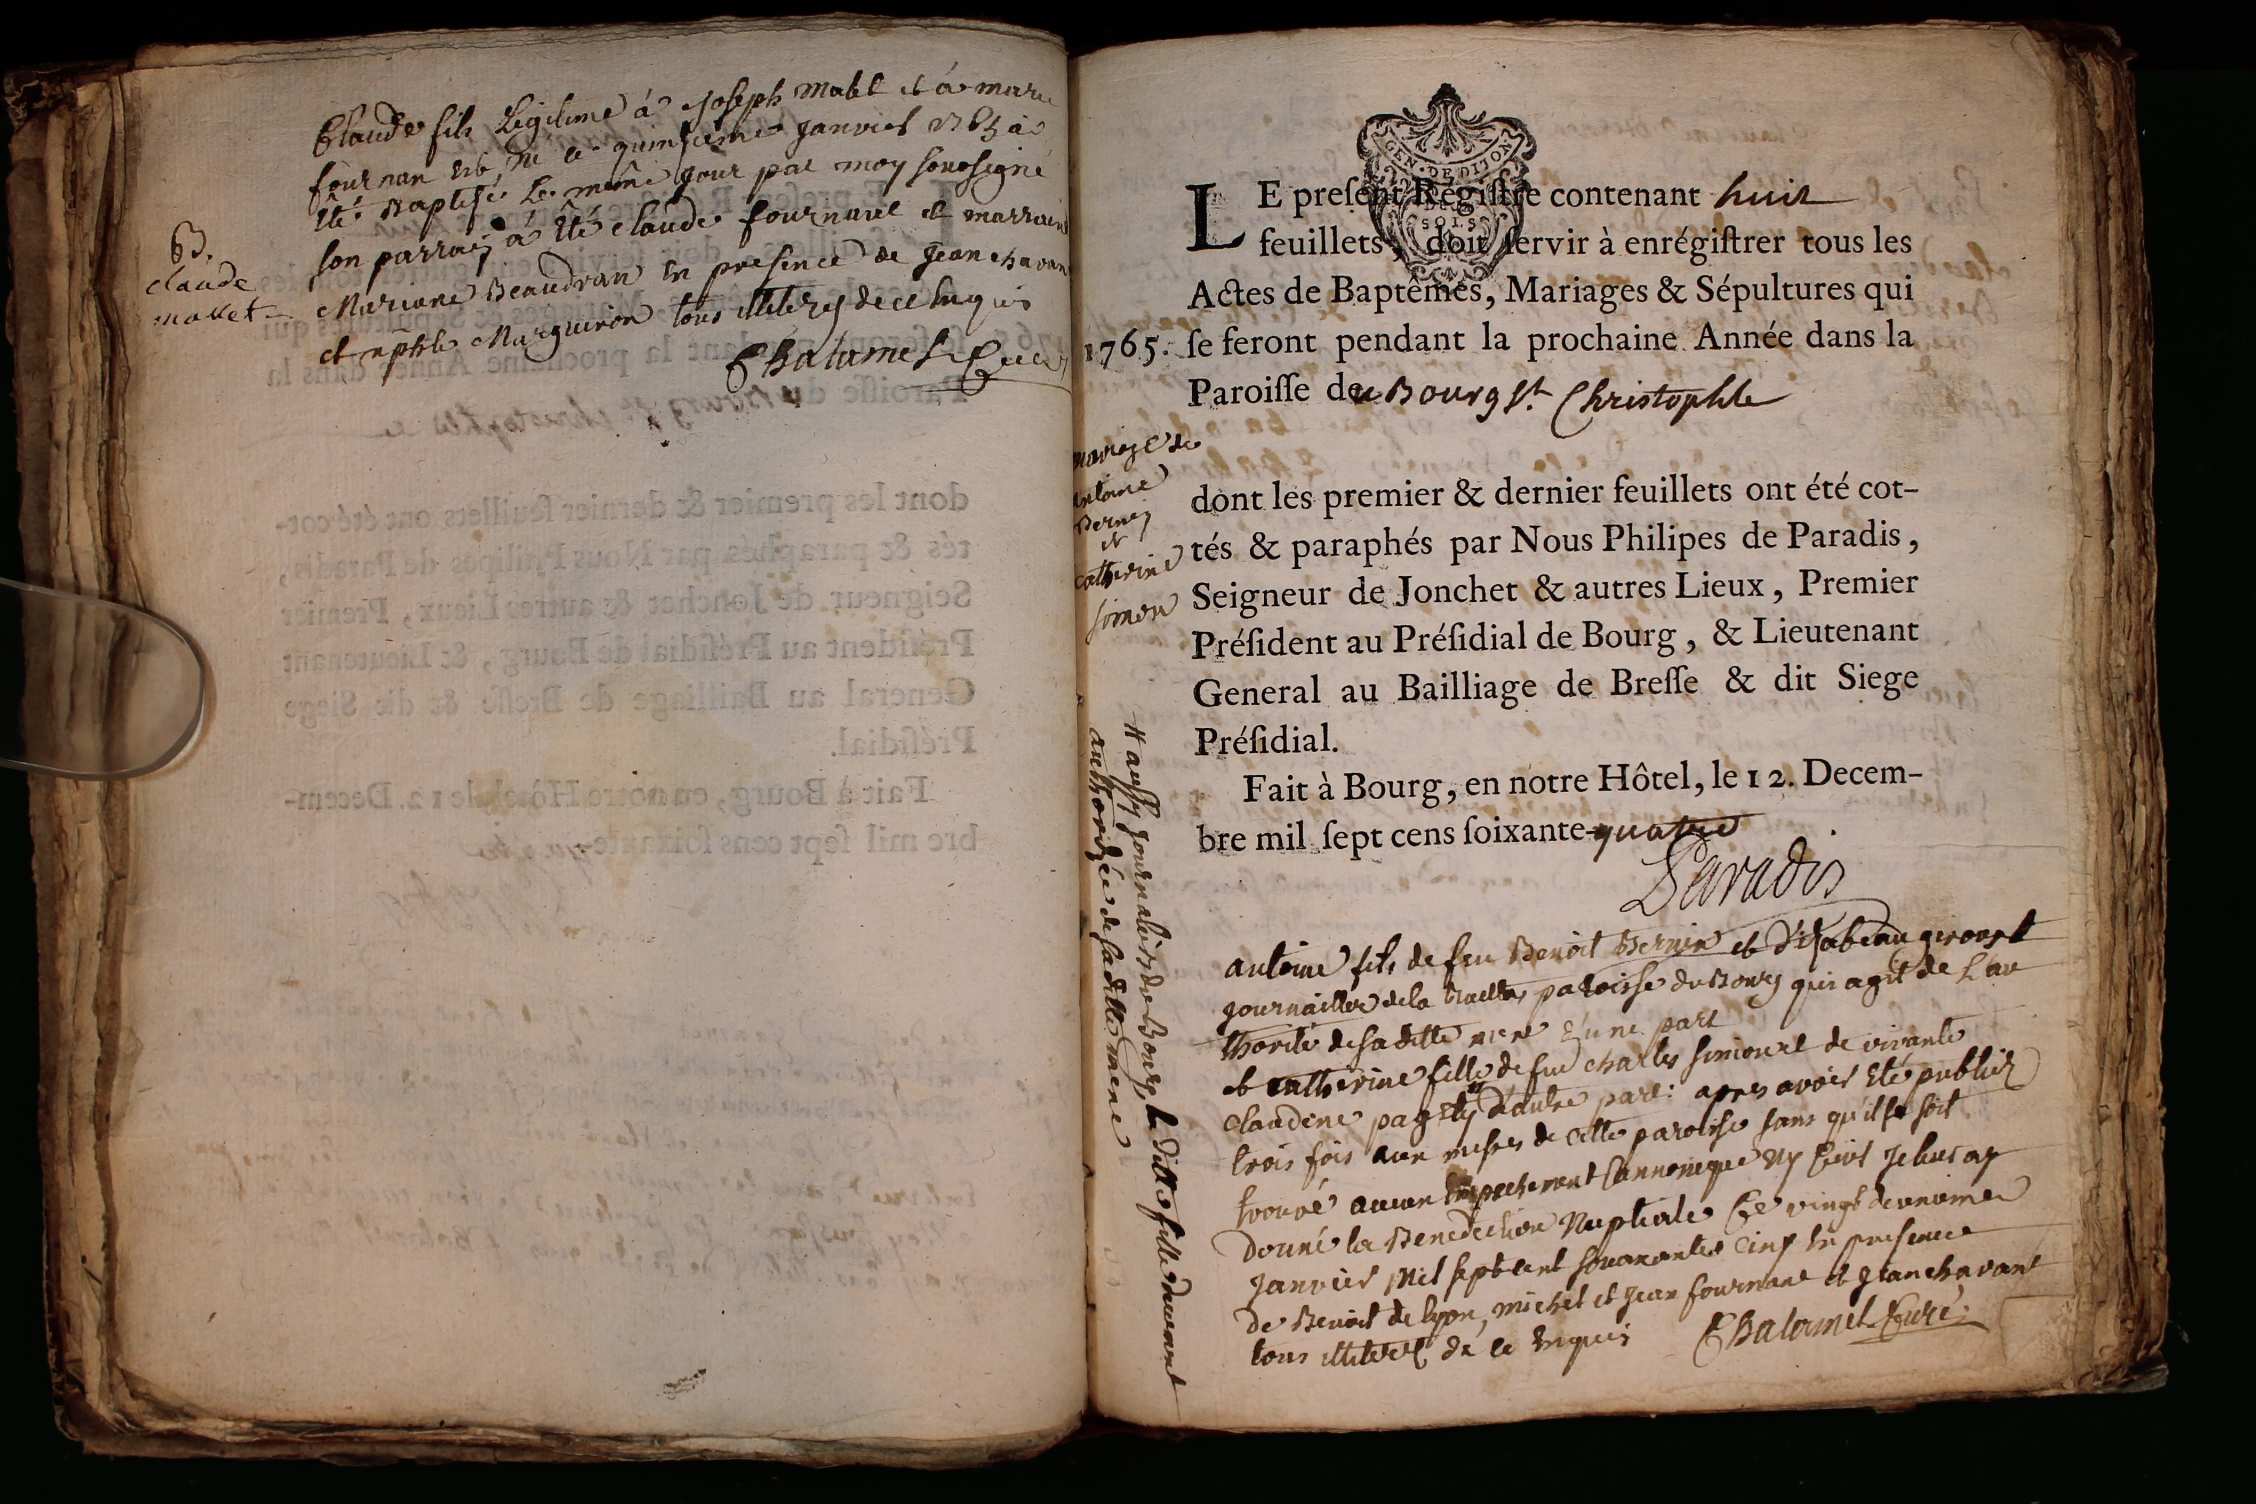 B.
claude
mallet
Claude fils Legitime à Joseph malet et à marie
fournan est né le quinsieme janvier 1765 a
été Baptisé le même jour par moy soussigné
son parrain à été claude fournant et marraine
Mariane Beaudran en presence de jean chavan
et Marguiron tous illiterés de ce enquis
Chalamel Curé
GEN. DE DIJON
SOLS
LE preſent Régiſtre contenant huit
feuillets, doit ſervir à enrégiſtrer tous les
Actes de Baptêmes, Mariages & Sépultures qui
1765. ſe feront pendant la prochaine Année dans la
Paroiſſe de u Bourg St. Christophle
dont les premier & dernier feuillets ont été cot-
tés & paraphés par Nous Philipes de Paradis,
Seigneur de Jonchet & autres Lieux, Premier
Préſident au Préſidial de Bourg, & Lieutenant
General au Bailliage de Breſſe & dit Siege
Préſidial.
Fait à Bourg, en notre Hôtel, le 12. Decem-
bre mil ſept cens ſoixante-quatre
Paradis
mariage de
antoine
Bernin
et
catherine
simon
antoine fils de feu Benoit Bernin et d'izabeau
journailler de la paroisse du Bourg qui agit de L'au
thorité de sa ditte mere d'une part
et catherine fille de feu charles simonet de vivante
claudine pagety # d'autre part: apres avoir eté publiez
trois fois aux messes de cette paroisse sans qu'il se soit
trouvé aucun empechement cannonique ny civil Je leur ay
donné la Benediction Nuptiale Ce vingt deuxieme
janvier mil sept cent soixante Cinq en presence
de Benoit de lyon, michel et jean fournant et jean chavant
tous illiterés de ce enquis Chalamel Curé
# aussy journaliere du Bourg, la ditte fille duement
authorizée de sa ditte mere